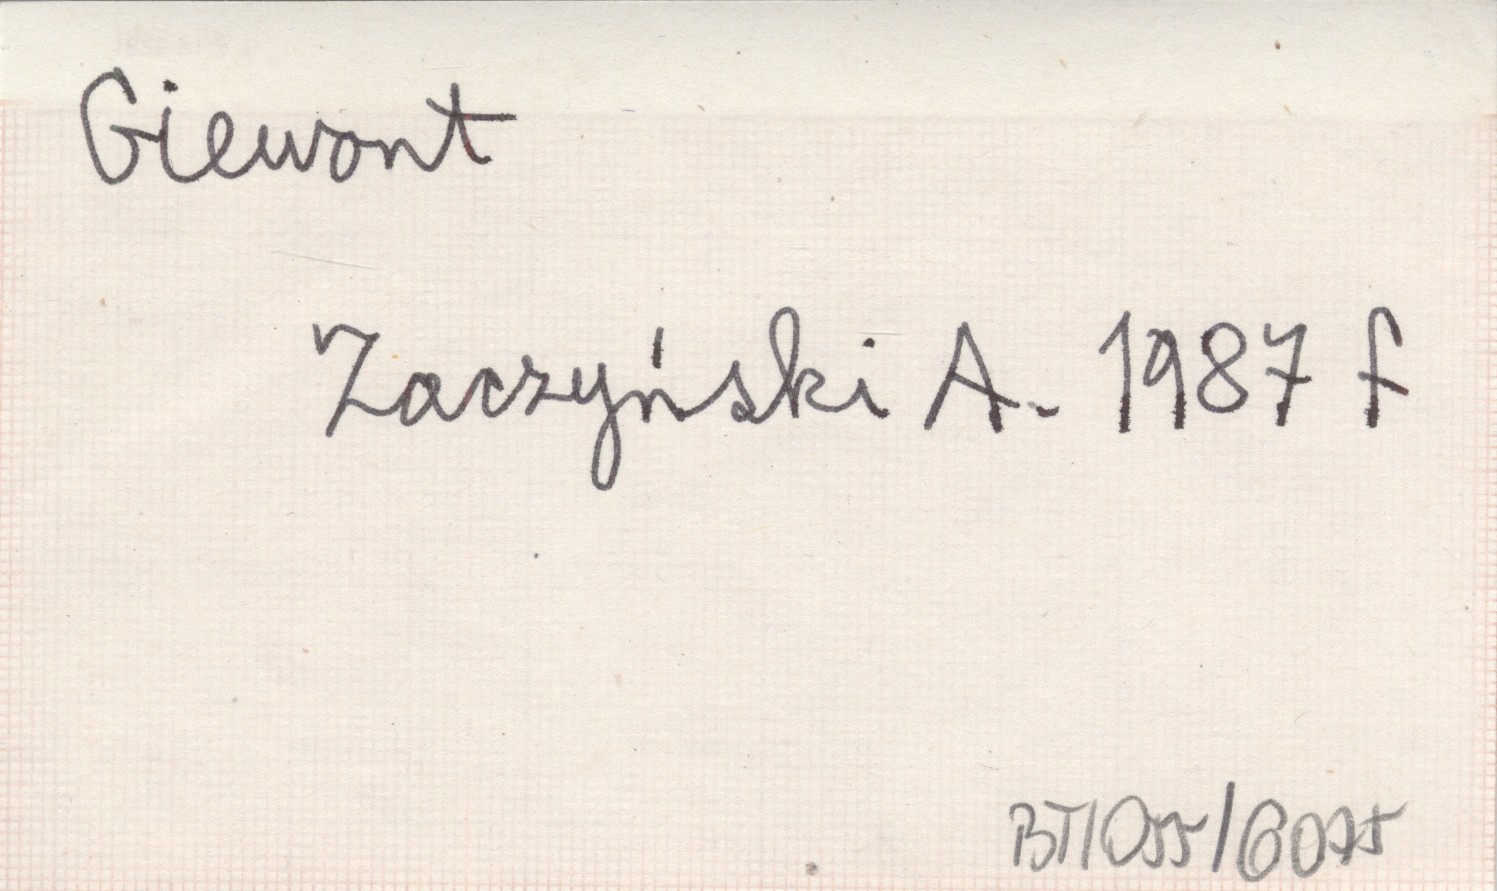 Giewont
Zaczyński A. 1987 f
BT/055/6075